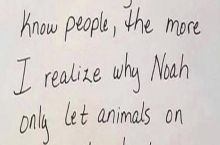 know people, the more
I realize why Noah
only let animals on